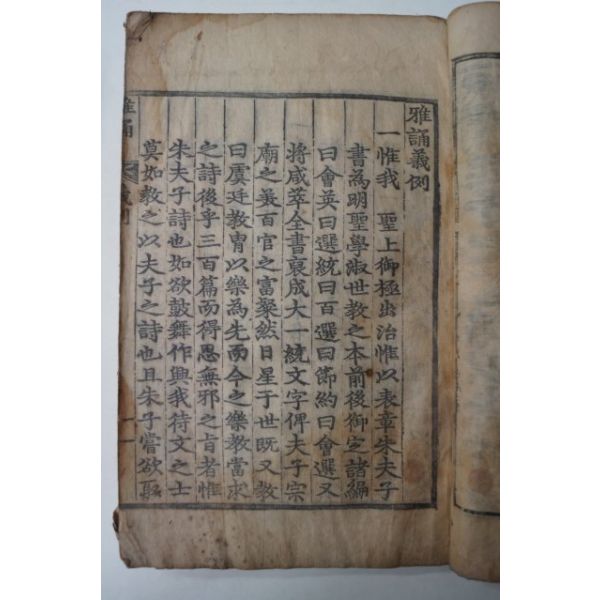 雅誦義例
一惟我 聖上御極出治惟以表章朱夫子
書為明聖學淑世教之本前後御定諸編
曰會英曰選統曰百選曰節約曰會選又
將咸萃全書裒成大一統文字俾夫子宗
廟之美百官之富粲然日星于世既又教
曰虞廷教冑以樂為先而今之樂教當求
之詩後乎三百篇而得思無邪之旨者惟
朱夫子詩也如欲鼓舞作興我待文之士
莫如教之以夫子之詩也且朱子嘗欲取
雅誦
義例
一